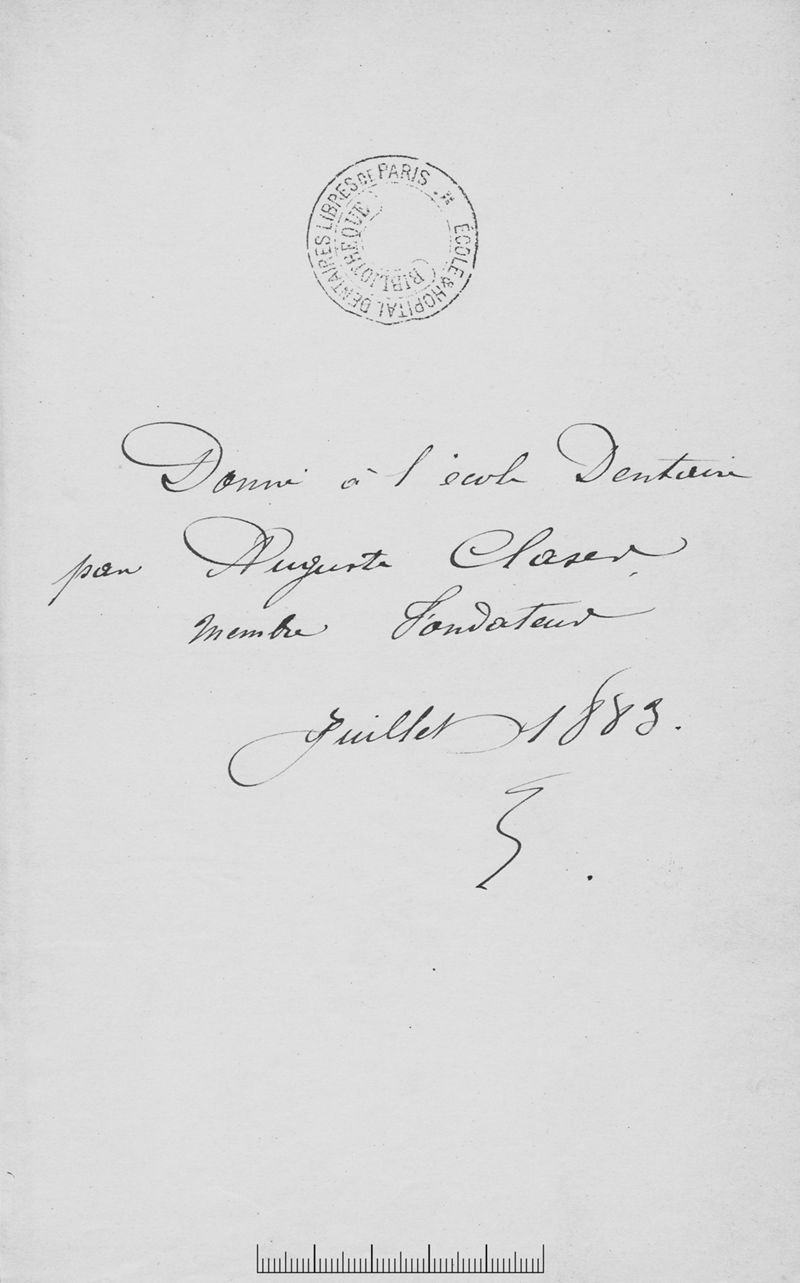 ÉCOLE & HOPITAL DENTAIRES LIBRES DE PARIS
BIBLIOTHEQUE
Donné à l'école Dentaire
par Auguste Claser
membre Fondateur
Juillet 1883.